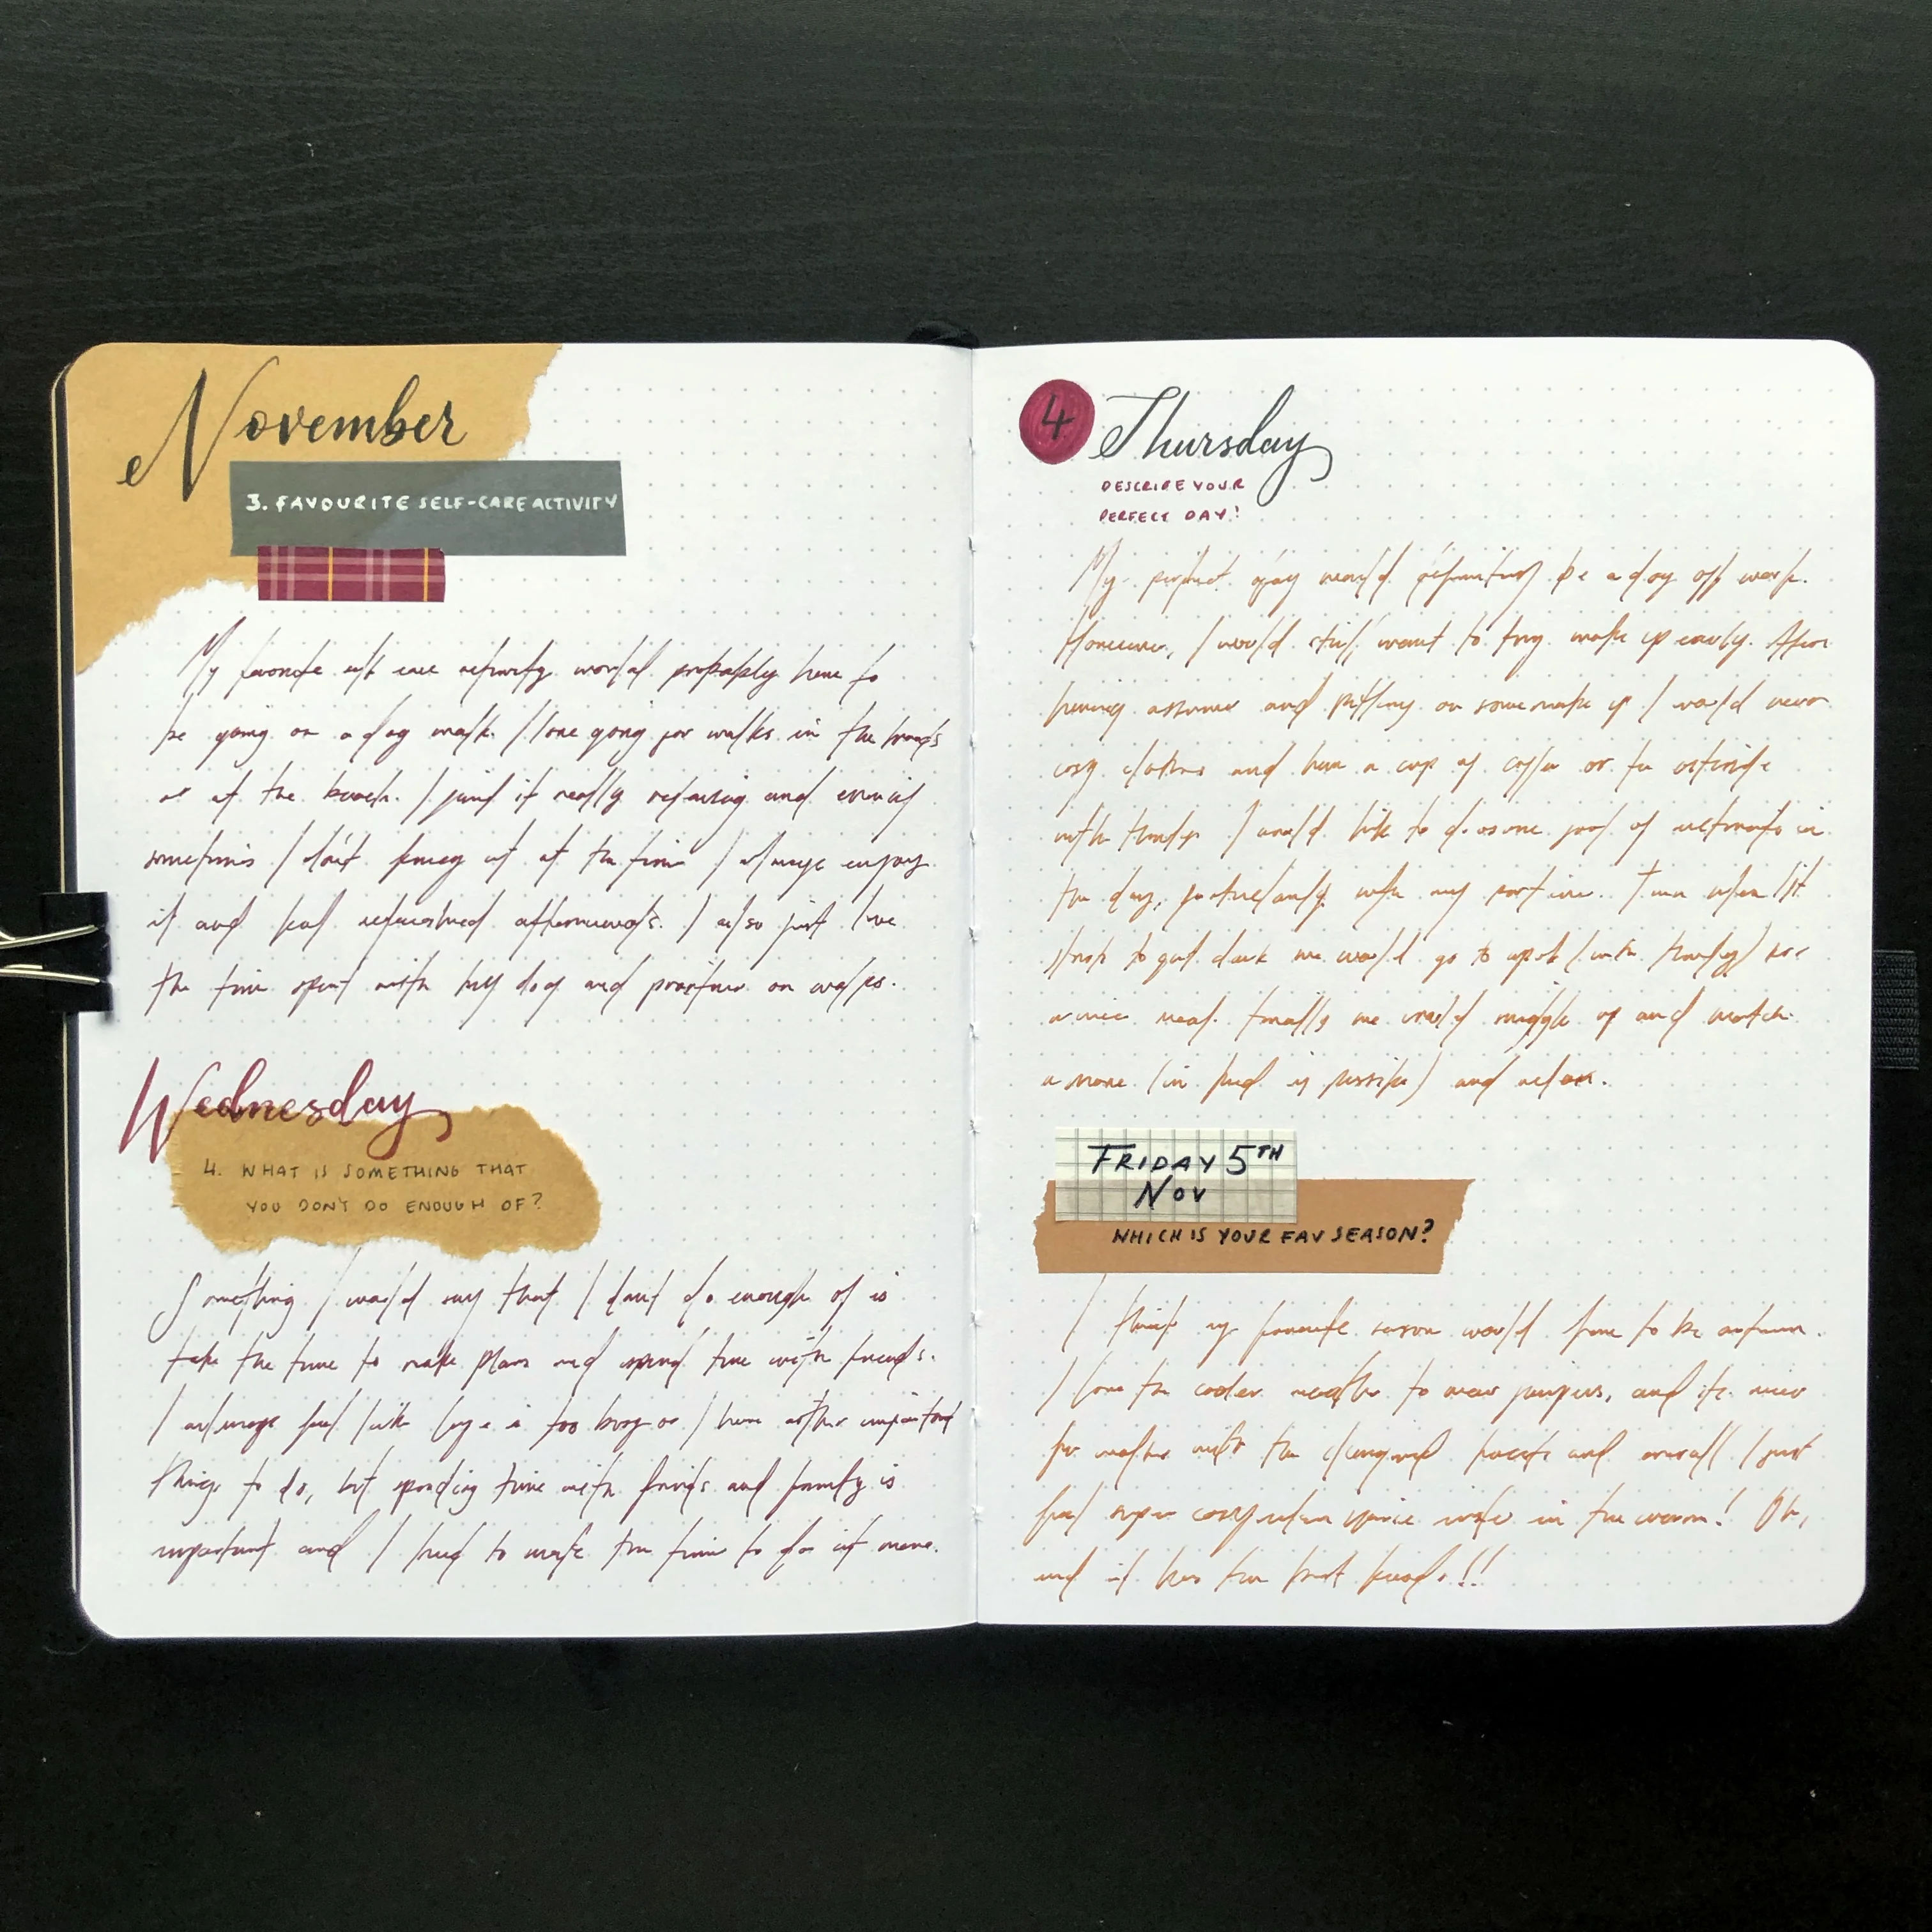 November
3. FAVOURITE SELF-CARE ACTIVITY
My favorite self care activity would probably have to
be going on a dog walk. I love going for walks in the woods
or at the beach. I find it really relaxing and even if
sometimes I don't fancy it at the time I always enjoy
it and feel refreshed afterwards. I also just love
the time spent with my dog and partner on walks.
Wednesday
4. WHAT IS SOMETHING THAT
YOU DON'T DO ENOUGH OF?
Something I would say that I dont do enough of is
take the time to make plans and spend time with friends.
I always feel like is too busy or I have other important
things to do, but spending time with friends and family is
important and I need to make the time to do it more.
4 Thursday
DESCRIBE YOUR
PERFECT DAY!
My perfect day would definitely be a day off work.
However, I would still want to try wake up early. After
having a shower and putting on some make up I would wear
cosy clothes and have a cup of coffee or tea outside
with I would like to do some sort of activity in
the day, particularly with my partner. Then when it
starts to get dark we would go to a pub (with ) for
a nice meal. Finally we would snuggle up and watch
a movie (in bed if possible) and relax.
FRIDAY 5TH
NOV
WHICH IS YOUR FAV SEASON?
I think my favorite season would have to be autumn.
I love the cooler weather to wear jumpers, and its nice
for walks with the changing and overall I just
feel super cosy when your inside in the warm! Oh,
and it has the best !!